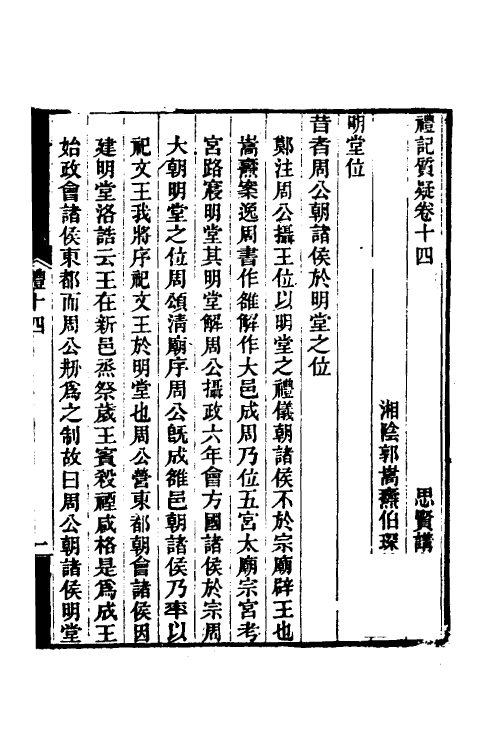 禮記質疑卷十四
思賢講
湘陰郭嵩燾伯琛
明堂位
昔者周公朝諸侯於明堂之位
鄭注周公攝王位以明堂之禮儀朝諸侯不於宗廟辟王也
嵩燾案逸周書作雒解作大邑成周乃位五宮太廟宗宮考
宮路寢明堂其明堂解周公攝政六年會方國諸侯於宗周
大朝明堂之位周頌清廟序周公旣成雒邑朝諸侯乃率以
祀文王我將序祀文王於明堂也周公營東都朝會諸侯因
建明堂洛誥云王在新邑烝祭歲王賓殺禋咸格是爲成王
始政會諸侯東都而周公剏爲之制故曰周公朝諸侯明堂
禮十四
一